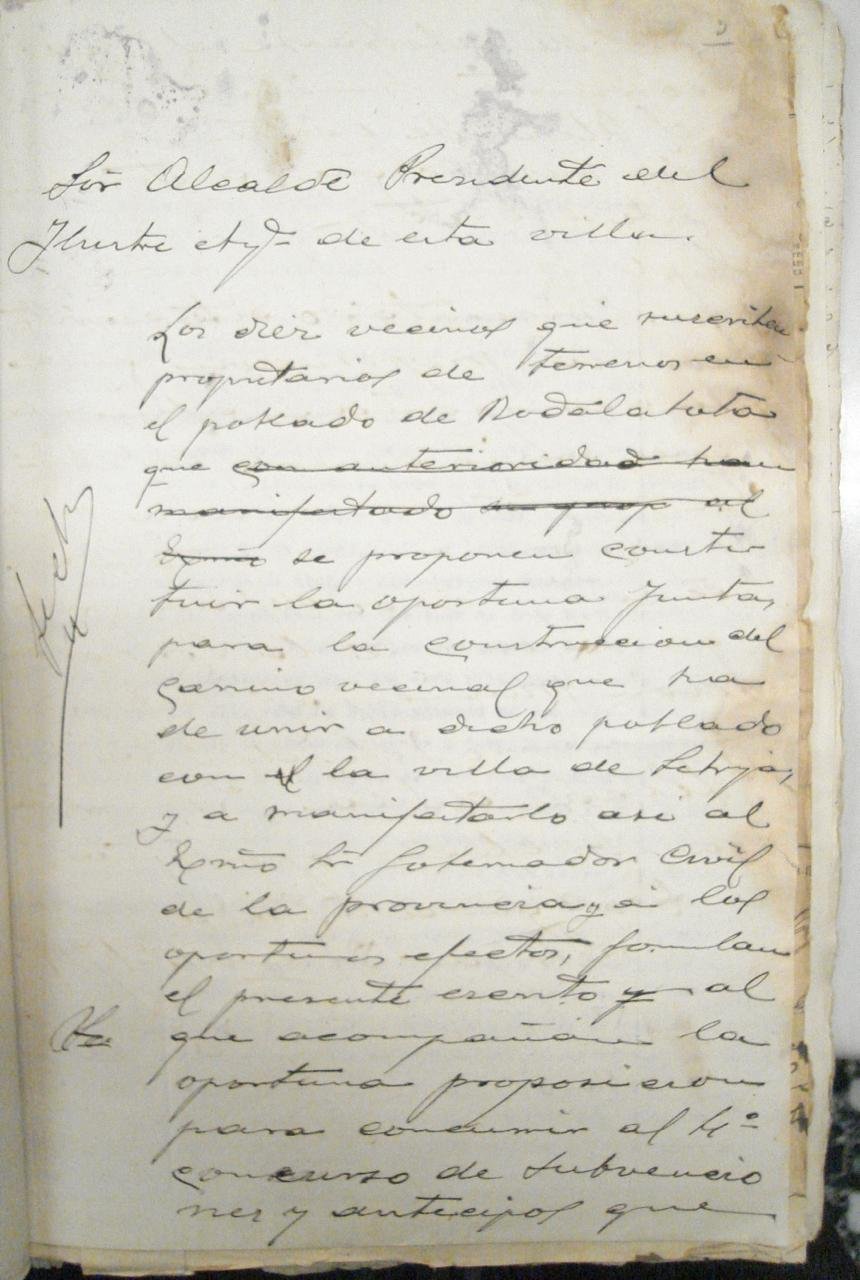 Sör Alcalde Presidente del
Ilustre Ayto de esta villa.
Los diez vecinos que suscriben
propietarios de terrenos en
el poblado de Rodalabota
que con anterioridad han
manifestado al
Exmo se proponen consti
tuir la oportuna Junta,
para la construccion del
camino vecinal que ha
de unir a dicho poblado
con la villa de
y a manifestarlo asi al
Exmo Sr Gobernador Civil
de la provincia y a los
oportunos efectos, formulan
el presente escrito y al
que acompañan la
oportuna proposicion
para concurrir al 4º
concurso de subvencio
nes y anticipos que